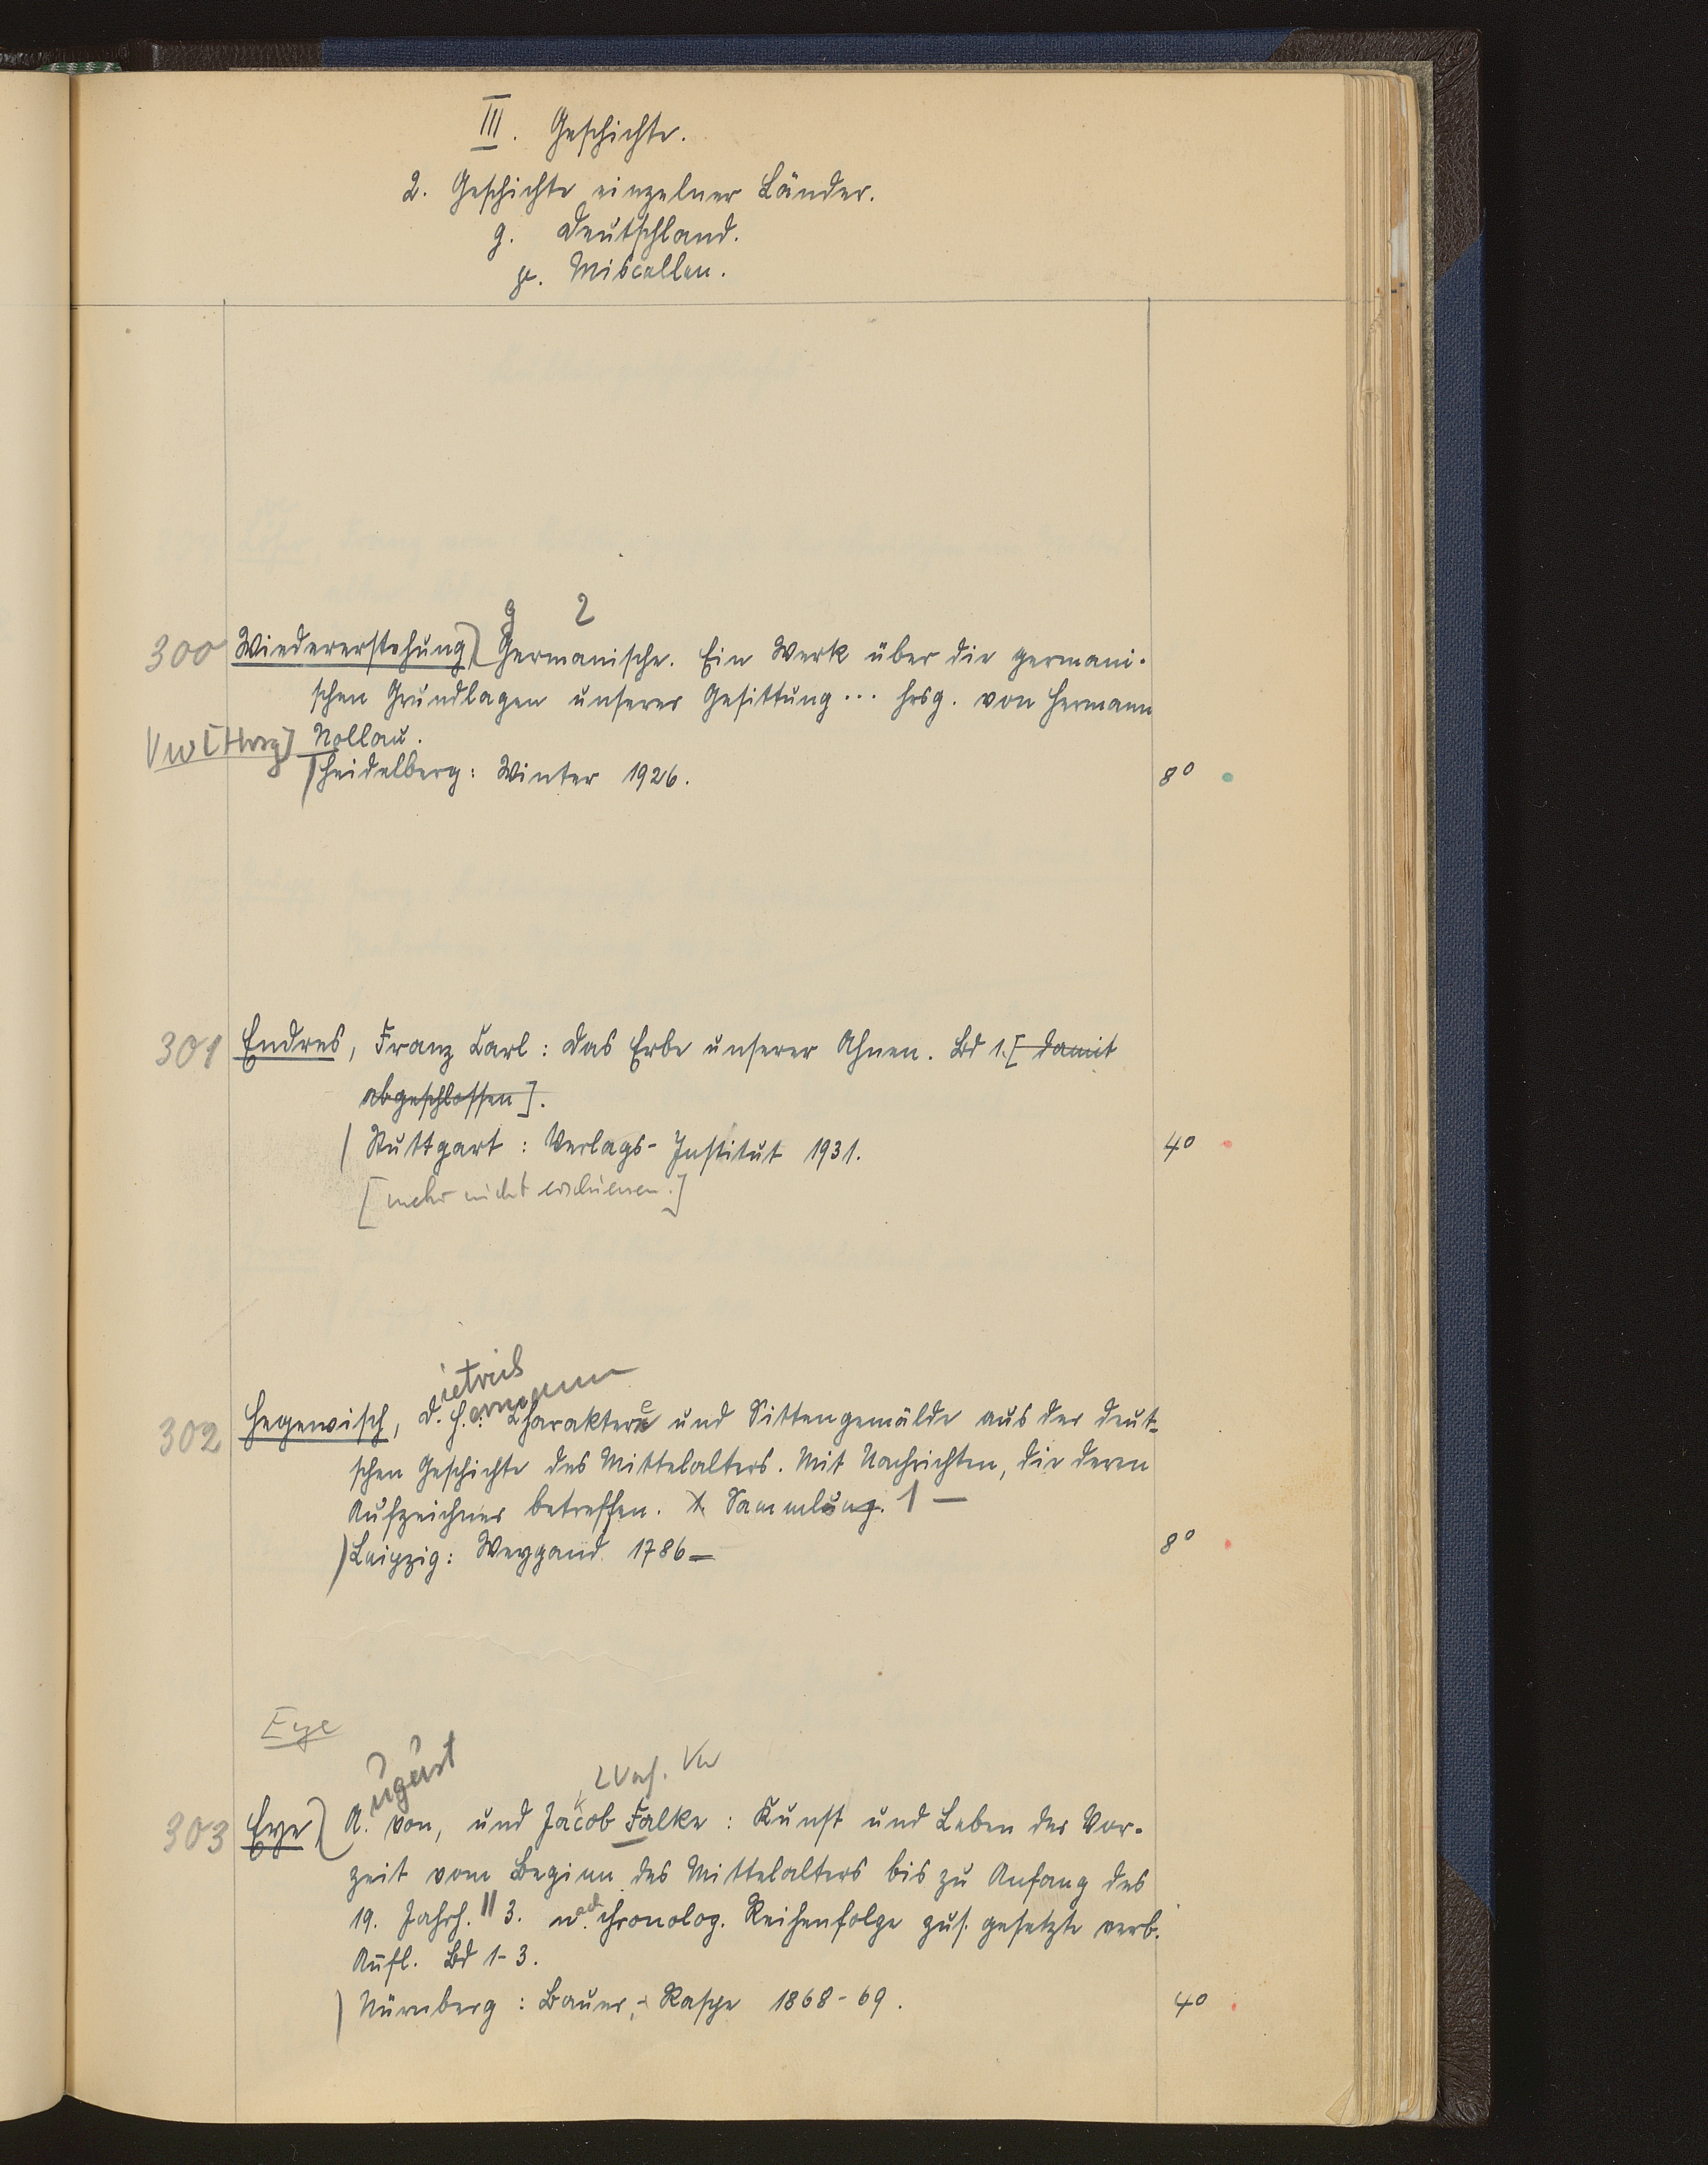 III. Geschichte.
2. Geschichte einzelner Länder.
g. Deutschland.
Miscellen.
g 2
300 Wiedererstehung) Germanische. Ein Werk über die germani-
schen Grundlagen unserer Gesittung... hrsg. von Hermann
Vw [Hrsg] Nollau.
Heidelberg: Winter 1926. 8°
301 Endres, Franz Carl: Das Erbe unserer Ahnen. Bd 1. [damit
abgeschlossen].
Stuttgart: Verlags-Institut 1931. 4°
[mehr nicht erschienen.]
ietrich
ermann
302 Hegewisch, D. H.: Charaktere und Sittengemälde aus der deut-
schen Geschichte des Mittelalters. Mit Nachrichten, die deren
Aufzeichner betreffen. 1. Sammlung. 1 —
Leipzig: Weygand. 1786— 8°
Eye
ugust
2 Verf. Vw
303 Eye) A. von, und Jacob Falke: Kunst und Leben der Vor-
zeit vom Beginn des Mittelalters bis zu Anfang des
19. Jahrh. || 3. chronolog. Reihenfolge zus. gesetzte verb.
Aufl. Bd 1-3.
Nürnberg: Bauer, Raspe 1868-69. 4°